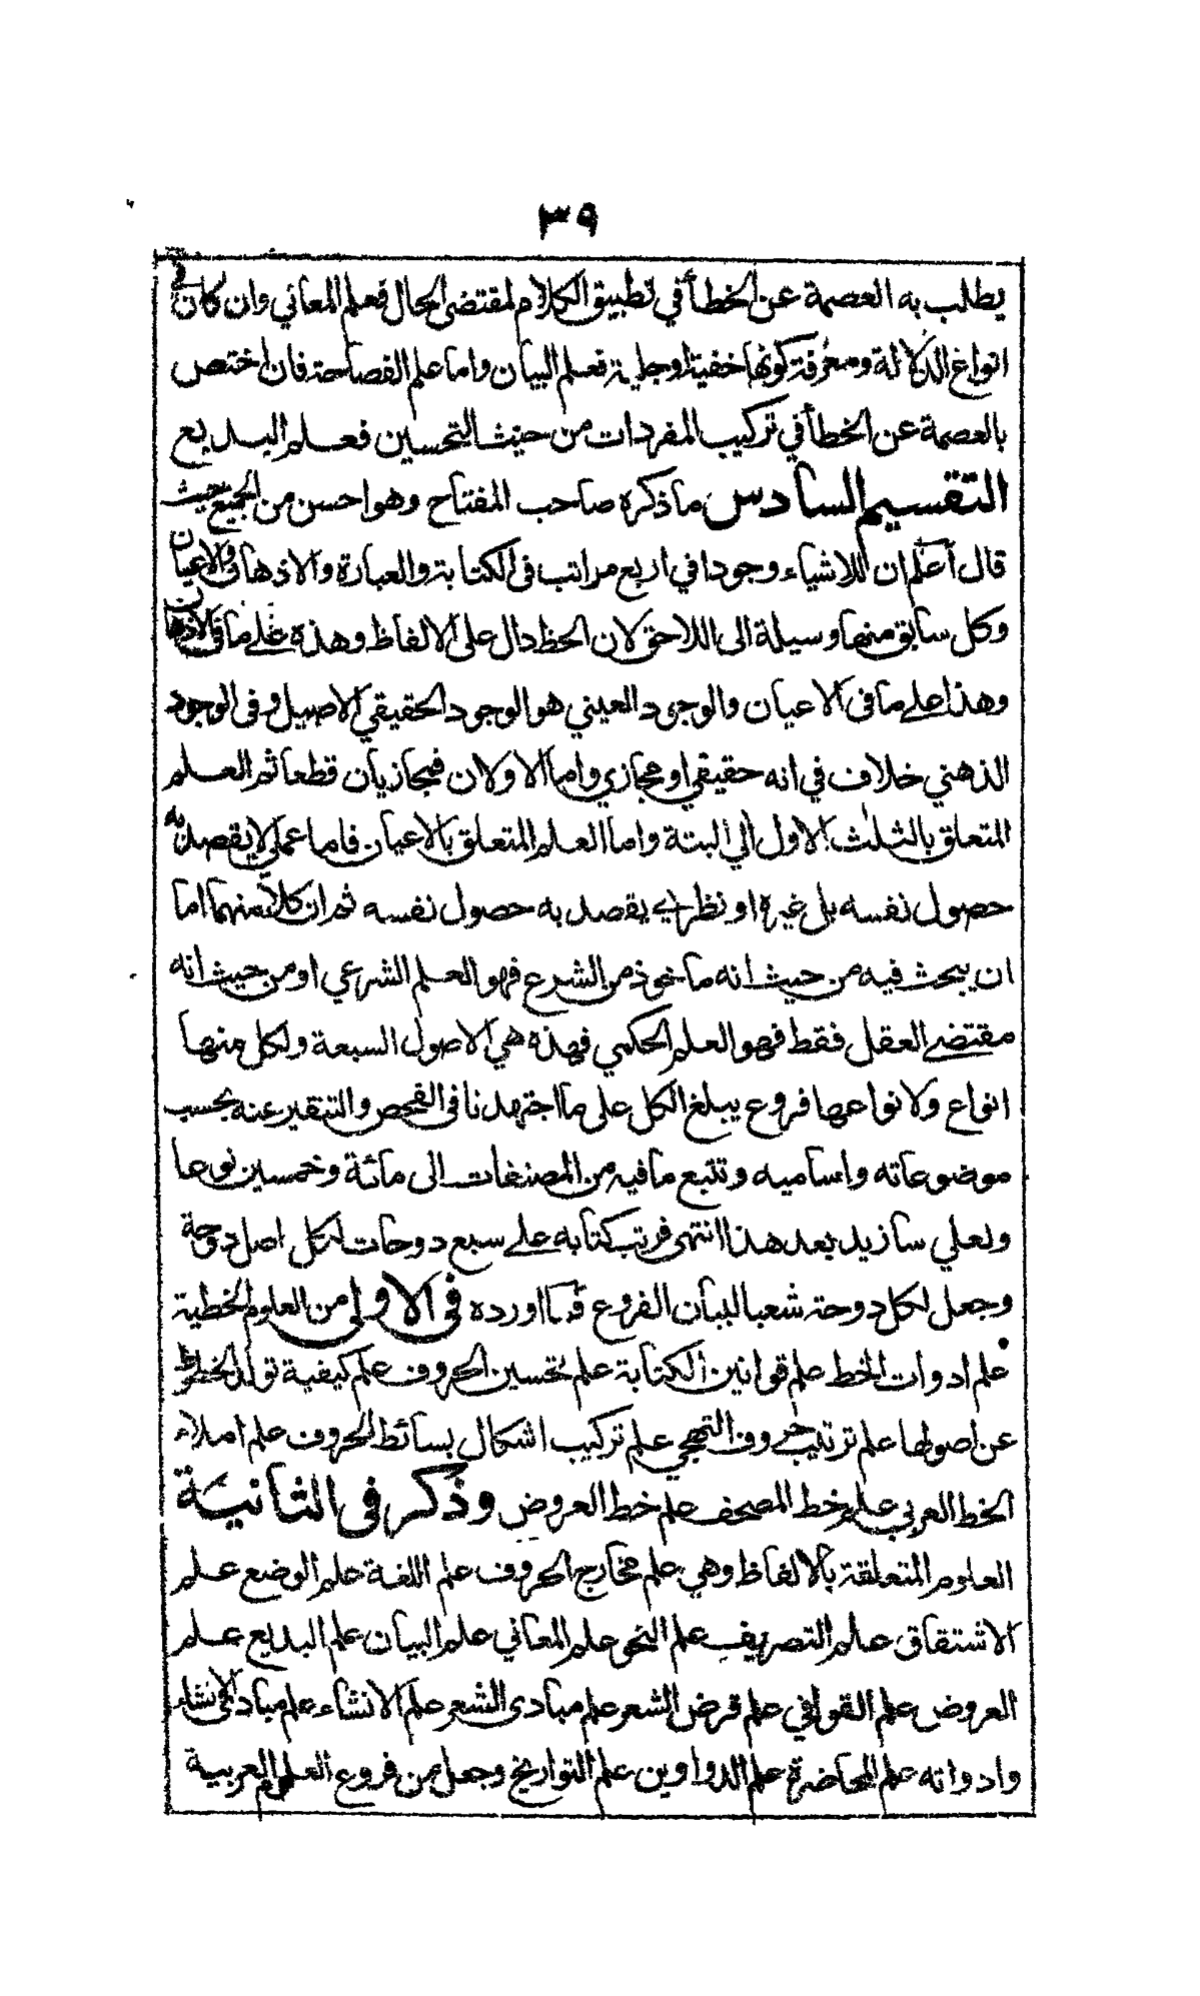 ٣٩
يطلب به العصمة عن الخطأ في تطبيق الكلام لمقتضى الحال فعلم المعاني وان كان في
انواع الدلالة ومعرفة كونها خفية او جلية فعلم البيان واما علم الفصاحة فان اختص
بالعصمة عن الخطأ في تركيب المفردات من حيث التحسين فعلم البديع
التقسيم السادس ما ذكره صاحب المفتاح وهو احسن من الجميع حيث
قال أعلم ان للاشياء وجودا في اربع مراتب في الكتابة والعبارة والاذهان والاعيان
وكل سابق منها وسيلة الى اللاحق لان الخط دال على الالفاظ وهذه على ما في الاذهان
وهذا على ما في الاعيان والوجود العيني هو الوجود الحقيقي الاصيل وفي الوجود
الذهني خلاف في انه حقيقي او مجازي واما الاولان فمجازيان قطعا ثم العلم
المتعلق بالثلث الاول آلي البتة واما العلم المتعلق بالاعيان فاما عملي لا يقصد به
حصول نفسه بل غيره او نظري يقصد به حصول نفسه ثم ان كلا منهما اما
ان يبحث فيه من حيث انه ماخوذ من الشرع فهو العلم الشرعي او من حيث انه
مقتضى العقل فقط فهو العلم الحكمي فهذه هي الاصول السبعة ولكل منها
انواع ولانواعها فروع يبلغ الكل على ما اجتهدنا في الفحص والتنقير عنه بحسب
موضوعاته واساميه وتتبع ما فيه من المصنفات الى مائة وخمسين نوعا
ولعلي سازيد بعد هذا انتهى فرتب كتابه على سبع دوحات لكل اصل دوحة
وجعل لكل دوحة شعبا لبيان الفروع فما اورده في الاولى من العلوم الخطية
علم ادوات الخط علم قوانين الكتابة علم تحسين الحروف علم كيفية تولد الخطوط
عن اصولها علم ترتيب حروف التهجي علم تركيب اشكال بسائط الحروف علم املاء
الخط العربي علم خط المصحف علم خط العروض وذكر في الثانية
العلوم المتعلقة بالالفاظ وهي علم مخارج الحروف علم اللغة علم الوضع علم
الاشتقاق علم التصريف علم النحو علم المعاني علم البيان علم البديع علم
العروض علم القوافي علم قرض الشعر علم مبادى الشعر علم الانشاء علم مبادي الانشاء
وادواته علم المحاضرة علم الدواوين علم التواريخ وجعل من فروع العلوم العربية